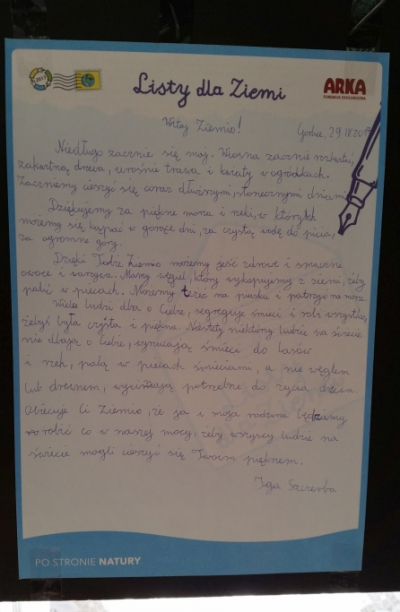 ARKA
Listy dla Ziemi
Witaj Ziemio!
Godna, 29.
Niedługo zacznie się maj. Wiosna zacznie rozkwitać,
zakwitną drzewa, urośnie trawa i kwiaty w ogródkach.
Zaczniemy cieszyć się coraz dłuższymi, słonecznymi dniami.
Dziękujemy za piękne morza i rzeki, w których
możemy się kąpać w gorące dni, za czystą wodę do picia,
za ogromne góry.
Dzięki Tobie Ziemio możemy jeść zdrowe i smaczne
owoce i warzywa. Mamy węgiel, który wykopujemy z ziemi, żeby
palić w piecach. Możemy leżeć na piasku i patrzeć na morze.
Wiele ludzi dba o Ciebie, segreguje śmieci i robi wszystko,
żebyś była czysta i piękna. Niestety niektórzy ludzie na świecie
nie dbają o Ciebie, wyrzucają śmieci do lasów
i rzek, palą w piecach śmieciami, a nie węglem
lub drewnem, wycinają potrzebne do życia drzewa.
Obiecuję Ci Ziemio, że ja i moja rodzina będziemy
robić co w naszej mocy, żeby wszyscy ludzie na
świecie mogli cieszyć się Twoim pięknem.
Iga Szczerba
PO STRONIE NATURY